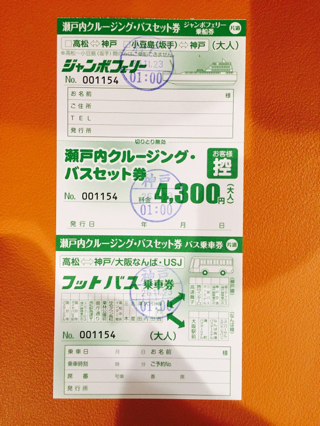 瀬戸内クルージング・バスセット券 ジャンボフェリー乗船券 片道
□高松⇔神戸 小豆島(坂手)⇔神戸 (大人)
ジャンボフェリー
No. 001154
01:00
お名前 様
ご住所
TEL
発行所
切りとり無効
瀬戸内クルージング・
バスセット券
お客様
控
No. 001154
料金 4,300円 (大人)
神戸
01:00
発行日 年 月 日
瀬戸内クルージング・バスセット券 バス乗車券 片道
高松⇔神戸/大阪なんば・USJ
フットバス 乗車券
01:00
No. 001154 (大人)
乗車日 月 日 お名前 様
乗車時刻 時 分 ご予約No.
座席 号車 番
発行所